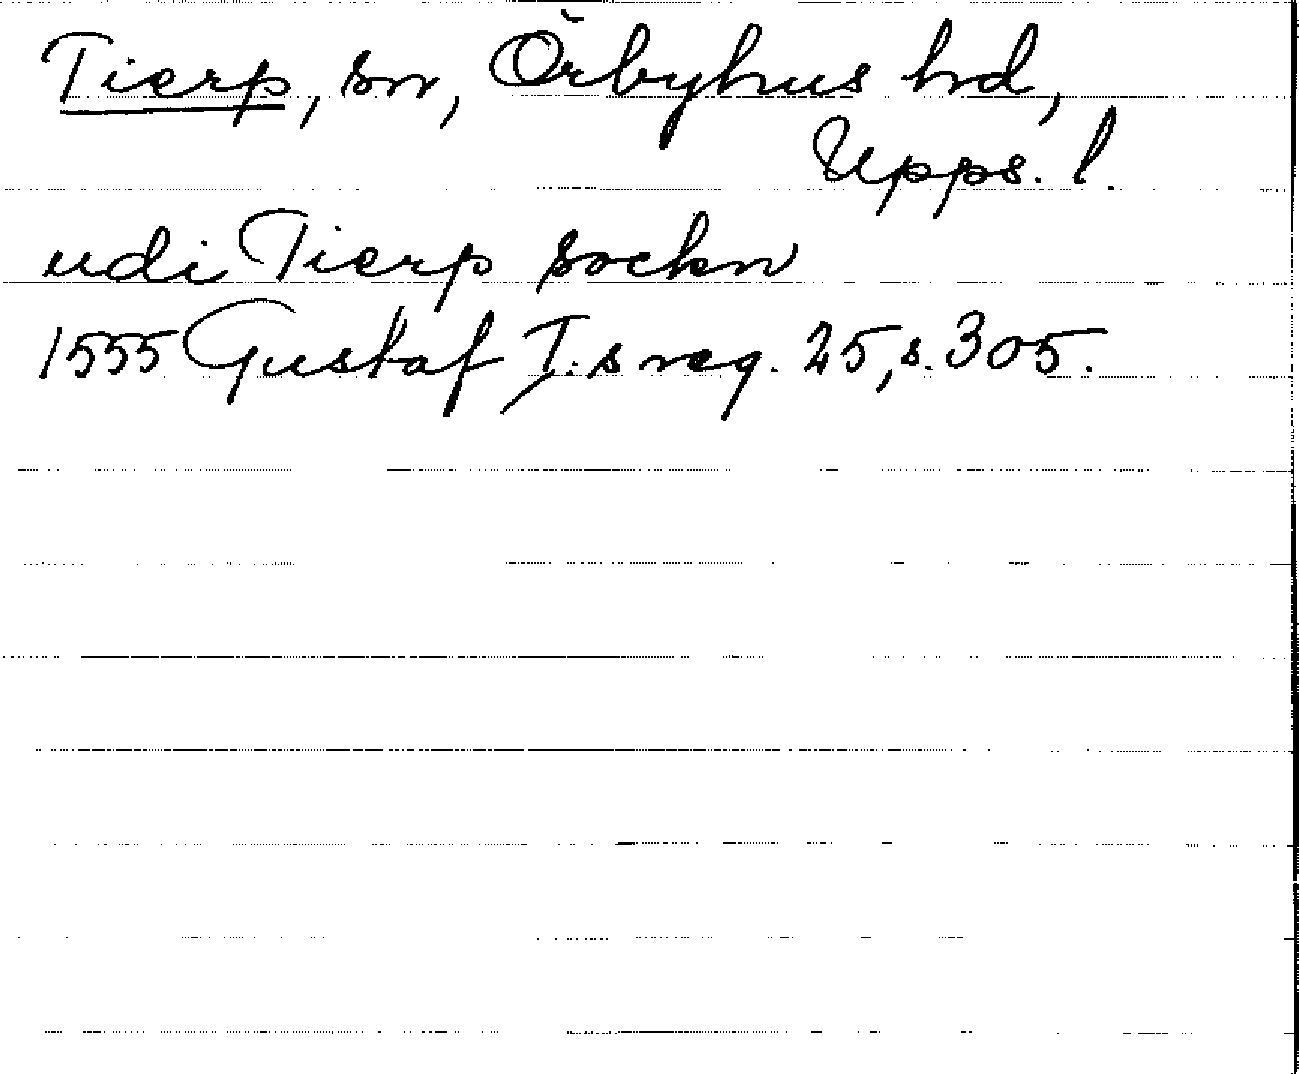 Tierp, sn, Örbyhus hd,
Upps. l.
udi Tierp sockn
1555 Gustaf I.s reg. 25, s. 305.